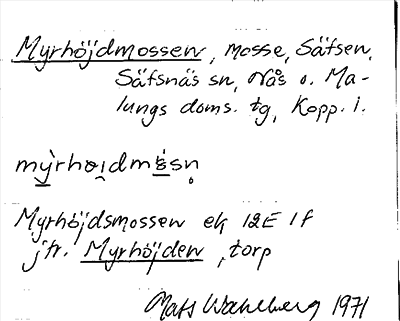 Myrhöjdmossen, mosse, Säfsen,
Säfsnäs sn, Nås o. Ma-
lungs doms. tg, Kopp. l.
Myrhöjdsmossen ek 12E 1f
jfr. Myrhöjden, torp
Mats Wahlberg 1971